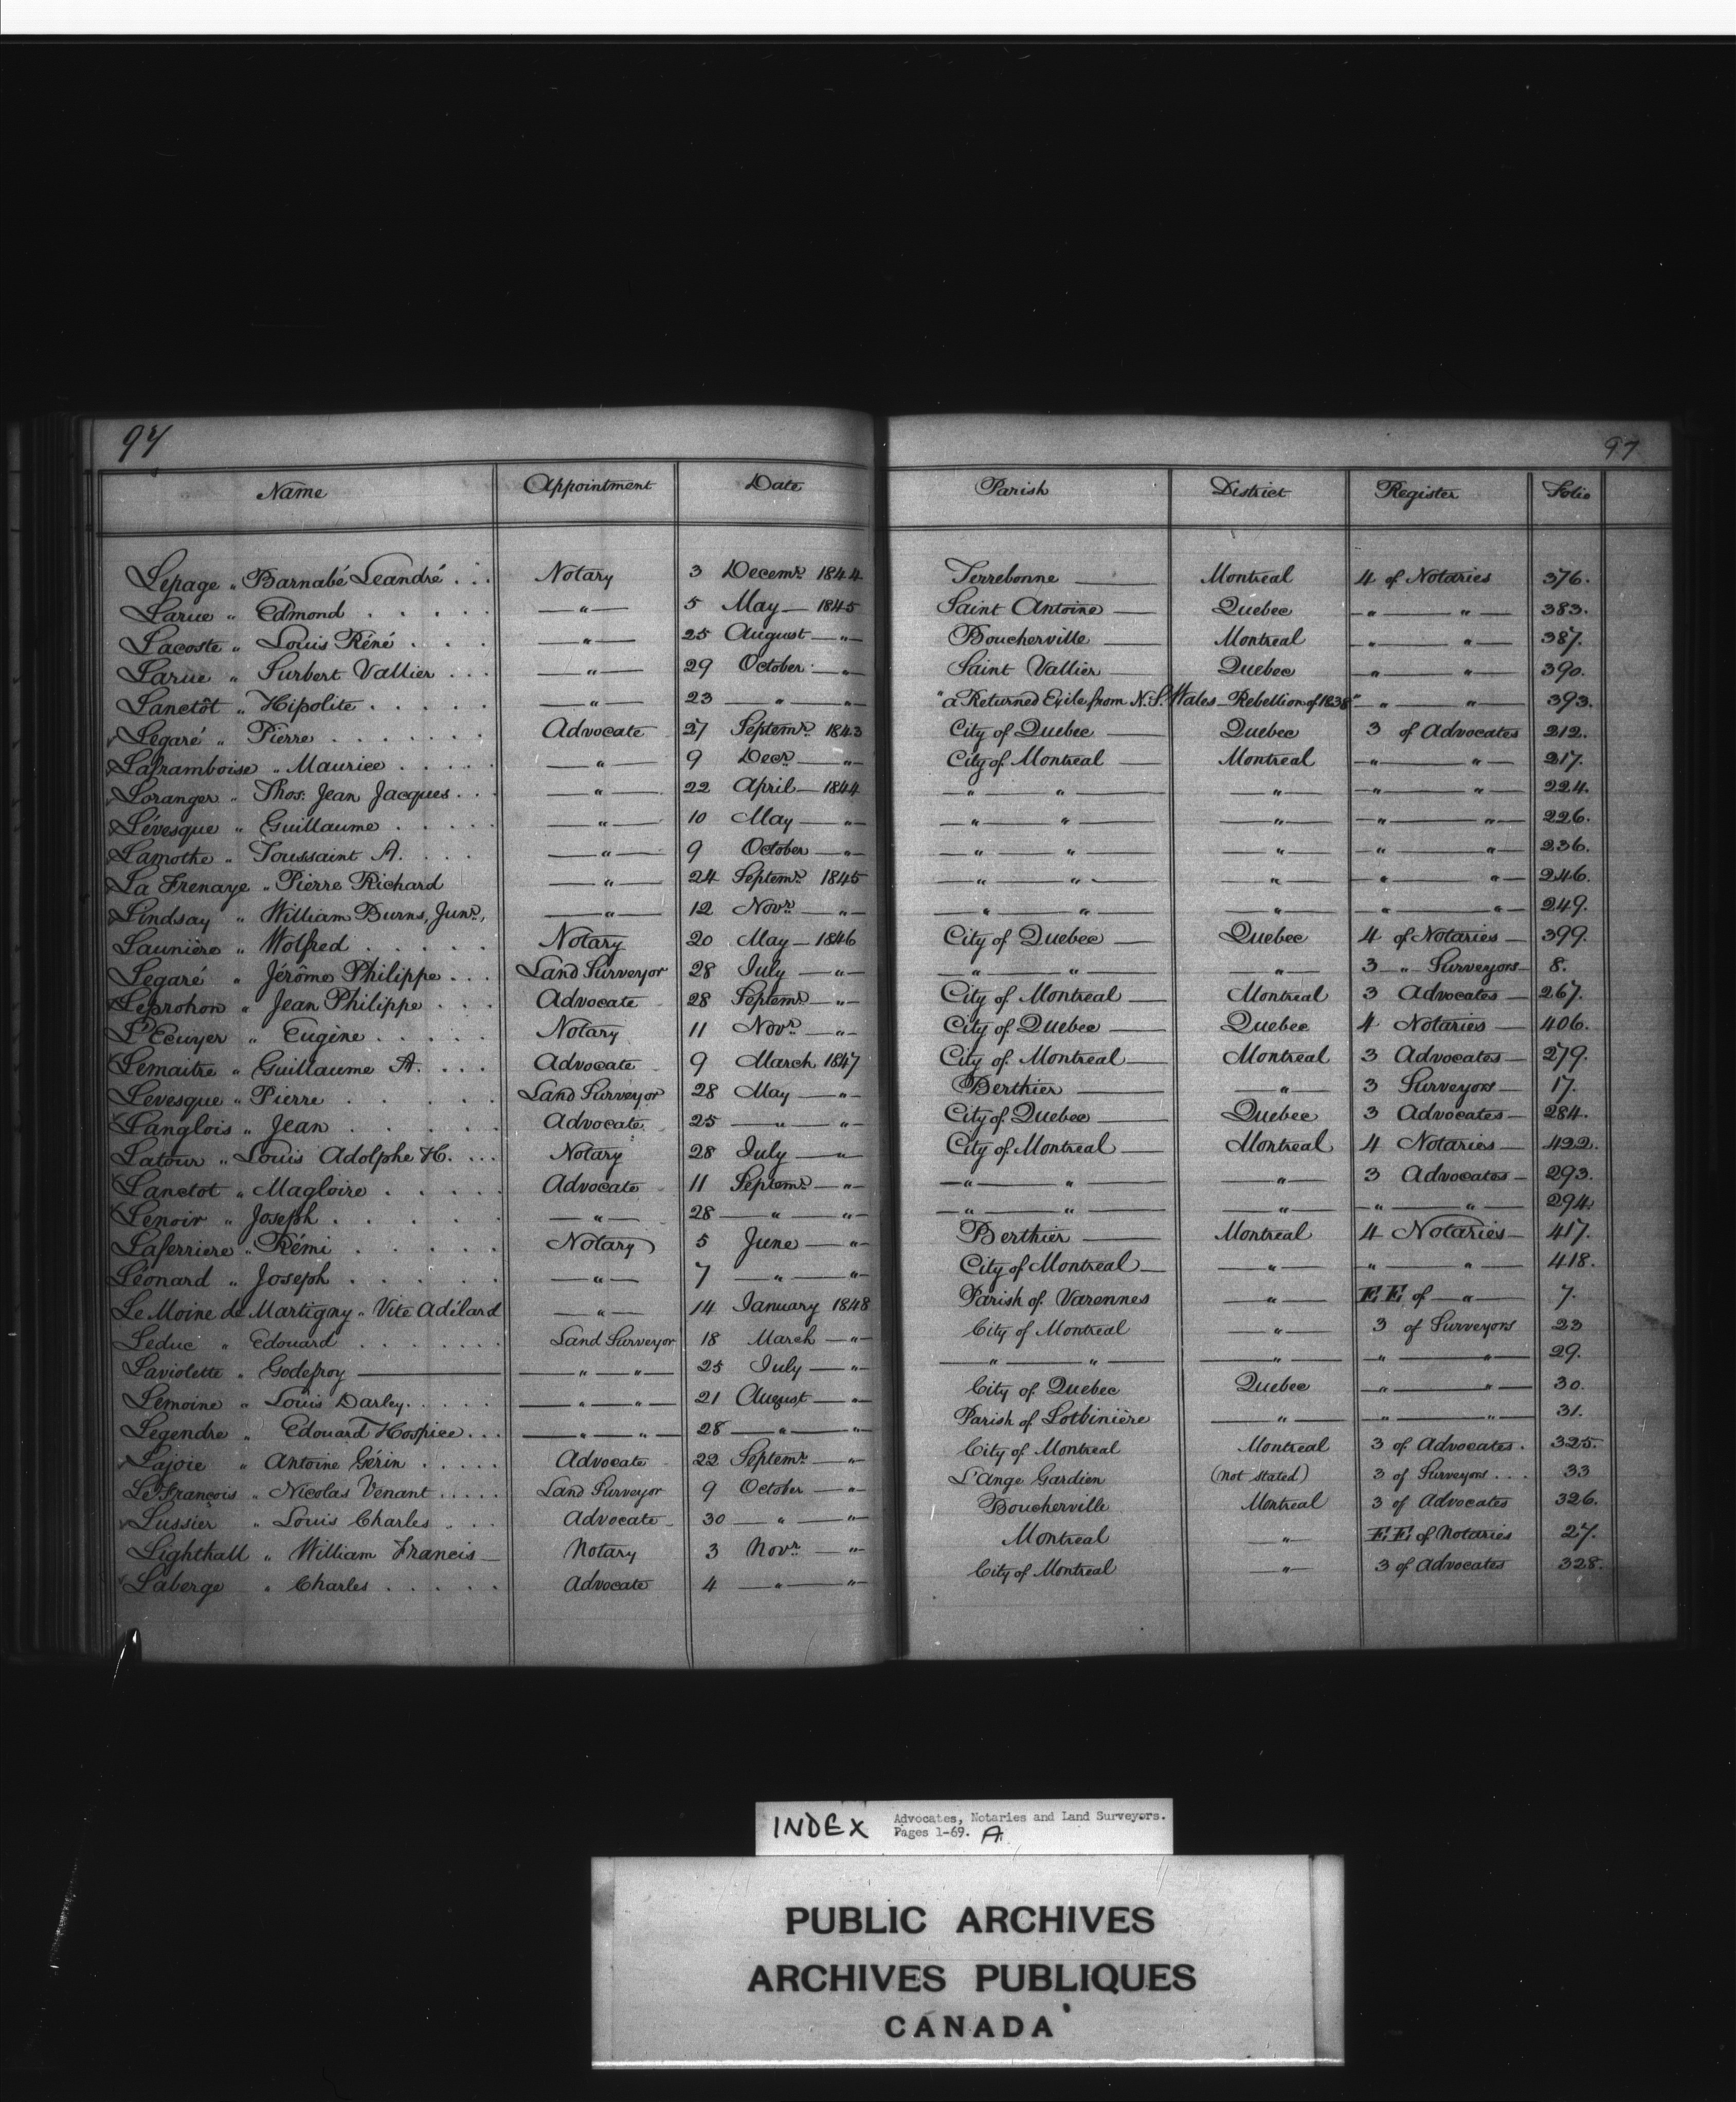 97 97
Name Appointment Date Parish District Register Folio
Lepage „ Barnabé Leandré . . . Notary 3 Decemr. 1844 Terrebonne — Montreal 4 of Notaries 376.
Larue „ Edmond . . . . . — „ — 5 May — 1845 Saint Antoine — Quebec — „ — „ — 383.
Lacoste „ Louis Réné . . . . — „ — 25 August — „ — Boucherville — Montreal — „ — „ — 387.
Larue „ Surbert Vallier . . . — „ — 29 October — „ — Saint Vallier — Quebec — „ — „ — 390.
Lanctôt „ Hipolite . . . . . — „ — 23 — „ — „ — "a Returned Exile from N. S. Wales – Rebellion of 1838" — „ — „ — 393.
Legaré „ Pierre . . . . . . . Advocate 27 Septemr. 1843 City of Quebec — Quebec 3 of Advocates 212.
Laframboise „ Maurice . . . . . — „ — 9 Decr. — „ — City of Montreal — Montreal — „ — „ — 217.
Loranger „ Thos. Jean Jacques . . . — „ — 22 April — 1844 — „ — „ — — „ — — „ — „ — 224.
Lévesque „ Guillaume . . . . . — „ — 10 May — „ — — „ — „ — — „ — — „ — „ — 226.
Lamothe „ Toussaint A. . . . — „ — 9 October — „ — — „ — „ — — „ — — „ — „ — 236.
La Frenaye „ Pierre Richard — „ — 24 Septemr. 1845 — „ — „ — — „ — — „ — „ — 246.
Lindsay „ William Burns, Junr., — „ — 12 Novr. — „ — — „ — „ — — „ — — „ — „ — 249.
Launière „ Wolfred . . . . . Notary 20 May — 1846 City of Quebec — Quebec 4 of Notaries — 399.
Legaré „ Jérôme Philippe . . . Land Surveyor 28 July — „ — — „ — „ — — „ — 3 „ Surveyors — 8.
Leprohon „ Jean Philippe . . . Advocate 28 Septemr. — „ — City of Montreal — Montreal 3 Advocates — 267.
L'Ecuyer „ Eugène . . . . . Notary 11 Novr. — „ — City of Quebec — Quebec 4 Notaries — 406.
Lemaitre „ Guillaume A. . . . Advocate 9 March 1847 City of Montreal — Montreal 3 Advocates — 279.
Levesque „ Pierre . . . . . Land Surveyor 28 May — „ — Berthier — — „ — 3 Surveyors — 17.
Langlois „ Jean . . . . . Advocate 25 — „ — „ — City of Quebec — Quebec 3 Advocates — 284.
Latour „ Louis Adolphe H. . . . Notary 28 July — „ — City of Montreal — Montreal 4 Notaries — 422.
Lanctot „ Magloire . . . . . Advocate 11 Septemr. — „ — — „ — „ — — „ — 3 Advocates — 293.
Lenoir „ Joseph . . . . . . — „ — 28 — „ — „ — — „ — „ — — „ — — „ — „ — 294.
Laferriere „ Rémi . . . . . Notary 5 June — „ — Berthier — Montreal 4 Notaries — 417.
Léonard „ Joseph . . . . . — „ — 7 — „ — „ — City of Montreal — — „ — — „ — „ — 418.
Le Moine de Martigny „ Vite Adélard — „ — 14 January 1848 Parish of Varennes — „ — E E of — „ — 7.
Leduc „ Edouard . . . . . . . Land Surveyor 18 March — „ — City of Montreal — „ — 3 of Surveyors 23
Laviolette „ Godefroy — — „ — „ — 25 July — „ — — „ — „ — — „ — — „ — „ — 29.
Lemoine „ Louis Darley . . . . . — „ — „ — 21 August — „ — City of Quebec Quebec — „ — „ — 30.
Legendre „ Edouard Hospice . . . — „ — „ — 28 — „ — „ — Parish of Lotbinière — „ — — „ — „ — 31.
Lajoie „ Antoine Gérin . . . . . Advocate 22 Septemr. — „ — City of Montreal Montreal 3 of Advocates . 325.
Le François „ Nicolas Venant . . . . . Land Surveyor 9 October — „ — L'Ange Gardien (not stated) 3 of Surveyors . . . 33
Lussier „ Louis Charles . . . Advocate 30 — „ — „ — Boucherville Montreal 3 of Advocates 326.
Lighthall „ William Francis — Notary 3 Novr. — „ — Montreal — „ — E E of Notaries 27.
Laberge „ Charles . . . . . Advocate 4 — „ — „ — City of Montreal — „ — 3 of Advocates 328.
INDEX Advocates, Notaries and Land Surveyors.
Pages 1-69. A
PUBLIC ARCHIVES
ARCHIVES PUBLIQUES
CANADA